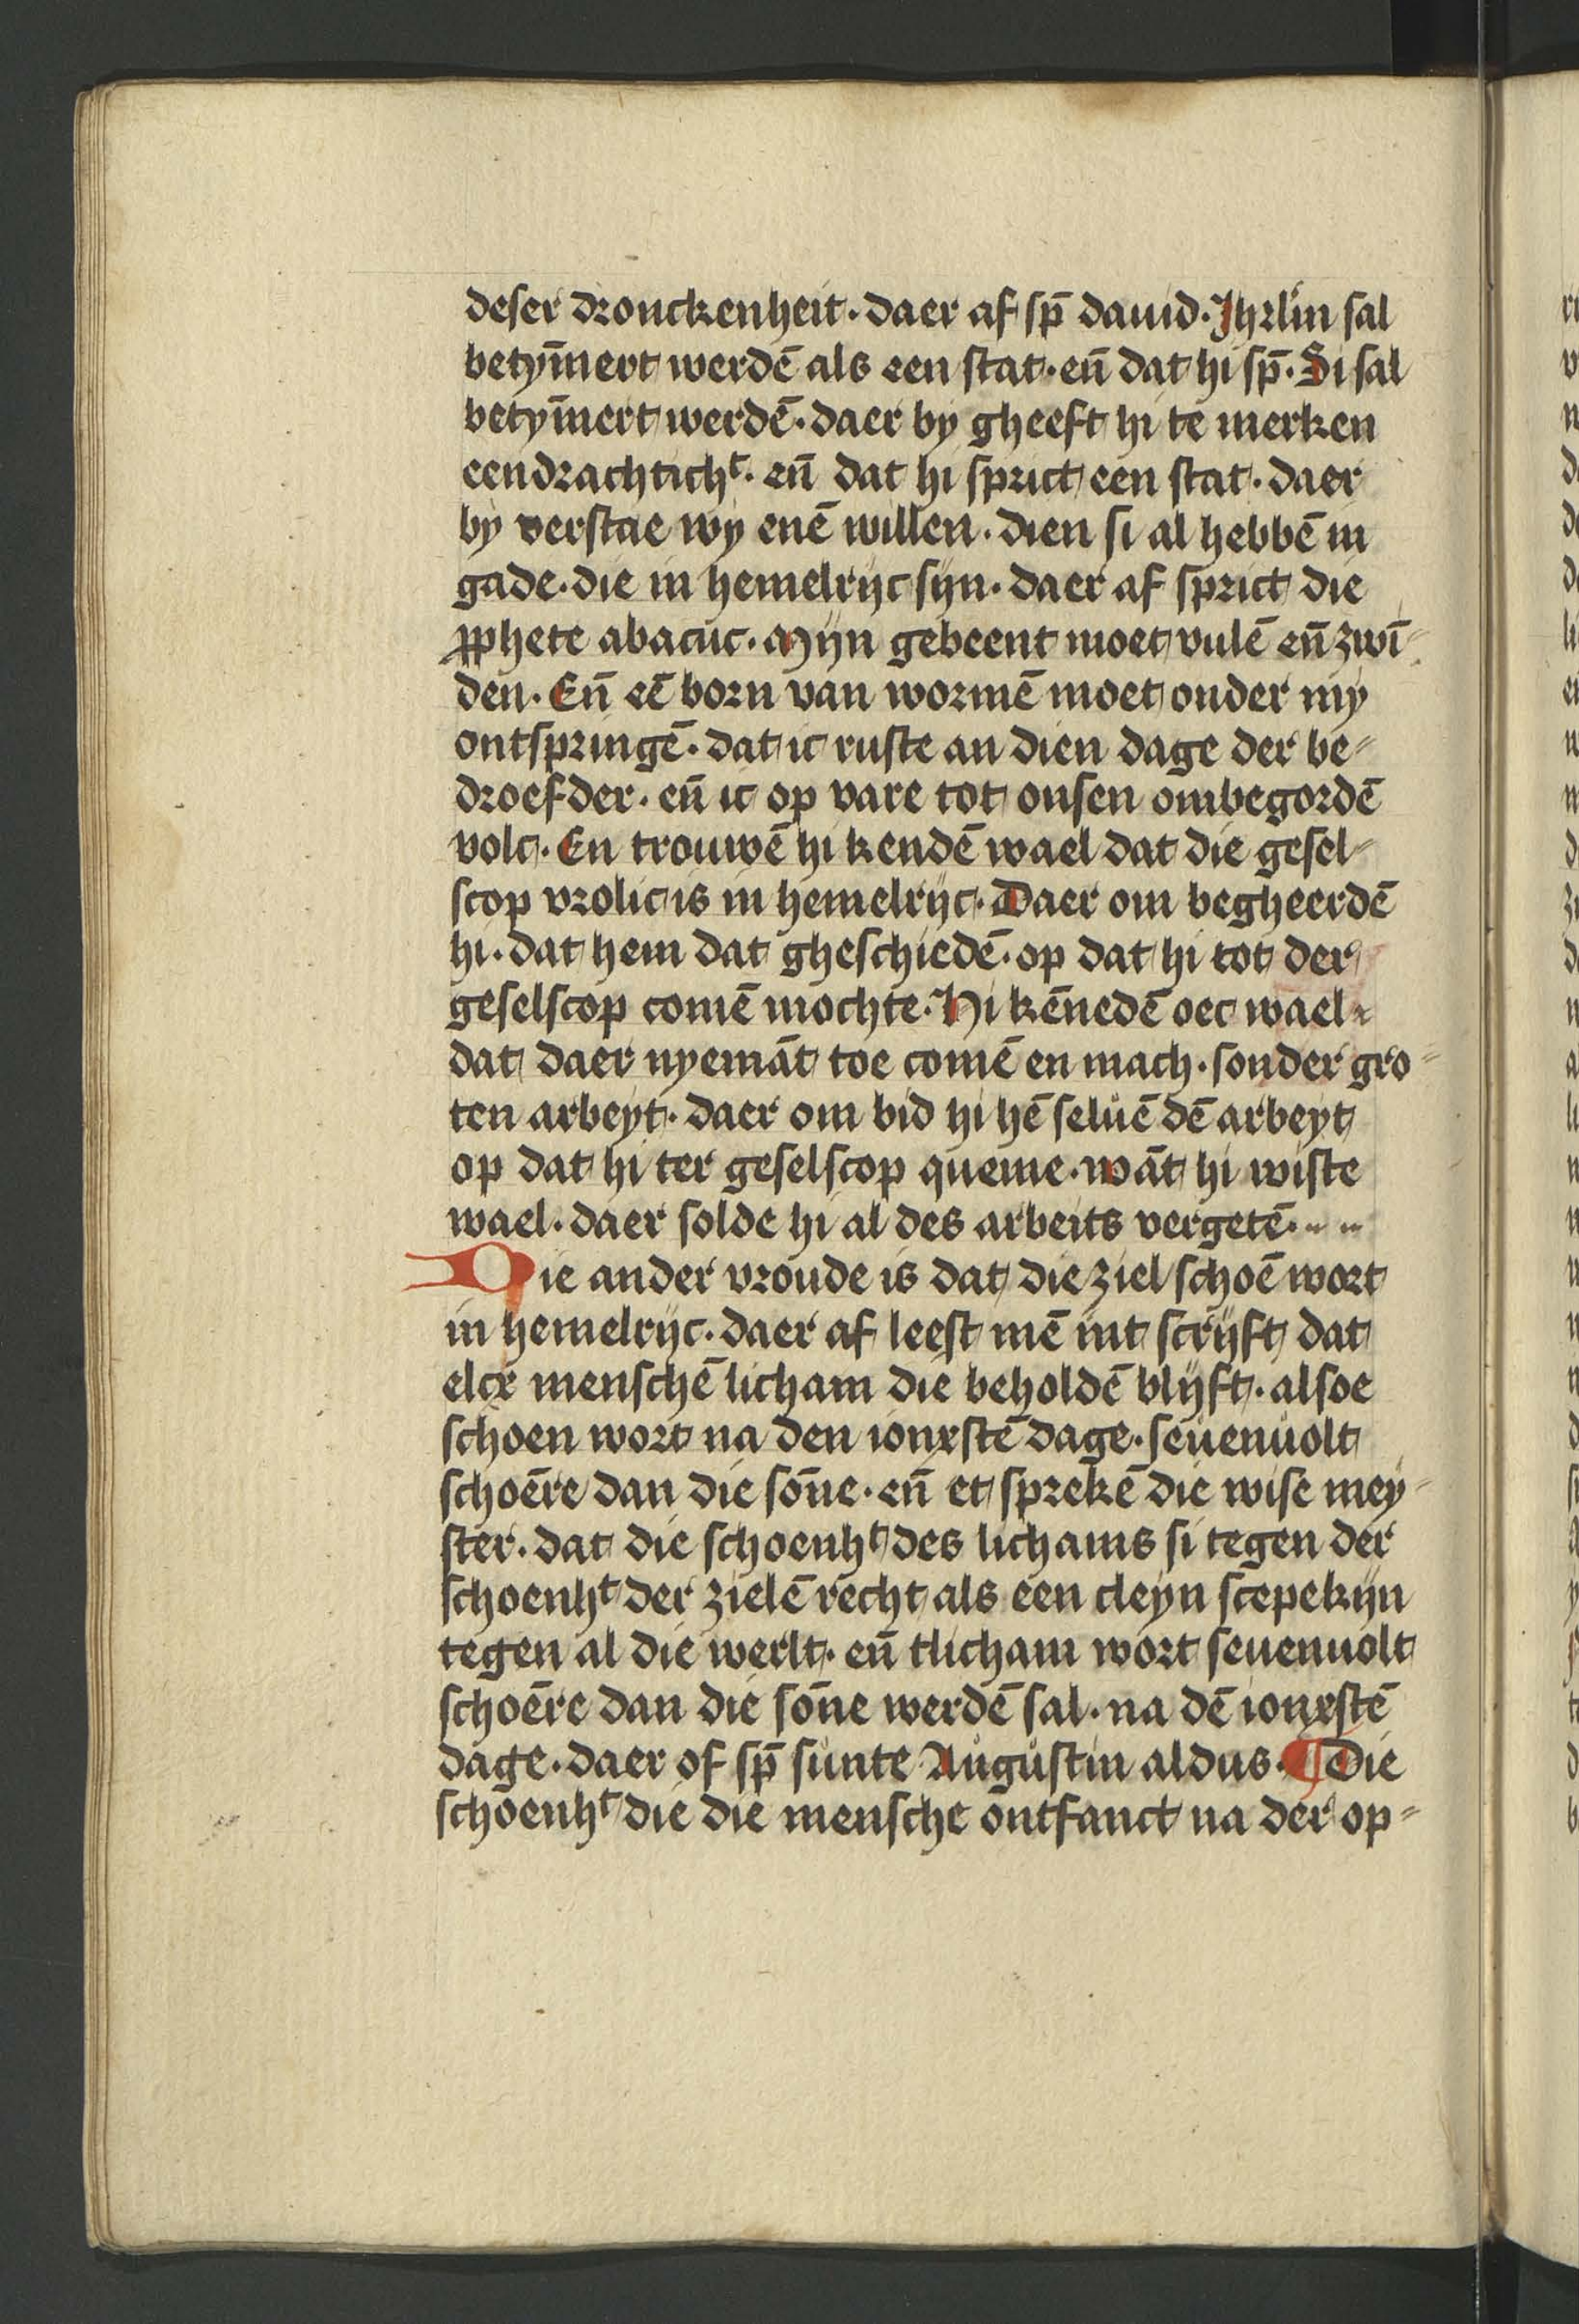 deser dronckenheit. daer af sp̄ dauid. Jhrl̄m sal
betym̄ert werdē als een stat. eñ dat hi sp̄. Si sal
betym̄ert werdē. daer by gheeft hi te merken
eendrachtichᵗ. eñ dat hi sprict een stat. daer
by verstae wy enē willen. dien si al hebbē in
gade. die in hemelrijc sijn. daer af sprict die
ꝓphete abacuc. Mijn gebeent moet vulē eñ zwī-
den. Eñ eē born van wormē moet onder my
ontspringē. dat ic ruste an dien dage der be-
droefder. eñ ic op vare tot onsen ombegordē
volc. En trouwē hi kendē wael dat die gesel-
scop vrolic is in hemelrijc. Daer om begheerdē
hi. dat hem dat gheschiedē. op dat hi tot der
geselscop comē mochte. Hi kēnedē oec wael
dat daer nyemāt toe comē en mach. sonder gro-
ten arbeyt. daer om bid hi hē seluē dē arbeyt
op dat hi ter geselscop queme. wāt hi wiste
wael. daer solde hi al des arbeits vergetē.
Die ander vroude is dat die ziel schoē wort
in hemelrijc. daer af leest mē int scrijft dat
elcx menschē licham die beholdē blijft. alsoe
schoen wort na den ionxstē dage. seuenuolt
schoēre dan die sōne. eñ et sprekē die wise mey-
ster. dat die schoenhᵗ des lichams si tegen der
schoenhᵗ der zielē recht als een cleyn scepekijn
tegen al die werlt. eñ tlicham wort seuenuolt
schoēre dan die sōne werdē sal. na dē ionxstē
dage. daer of sp̄ sunte Augustin aldus. ¶ Die
schoenhᵗ die die mensche ontfanct na der op-